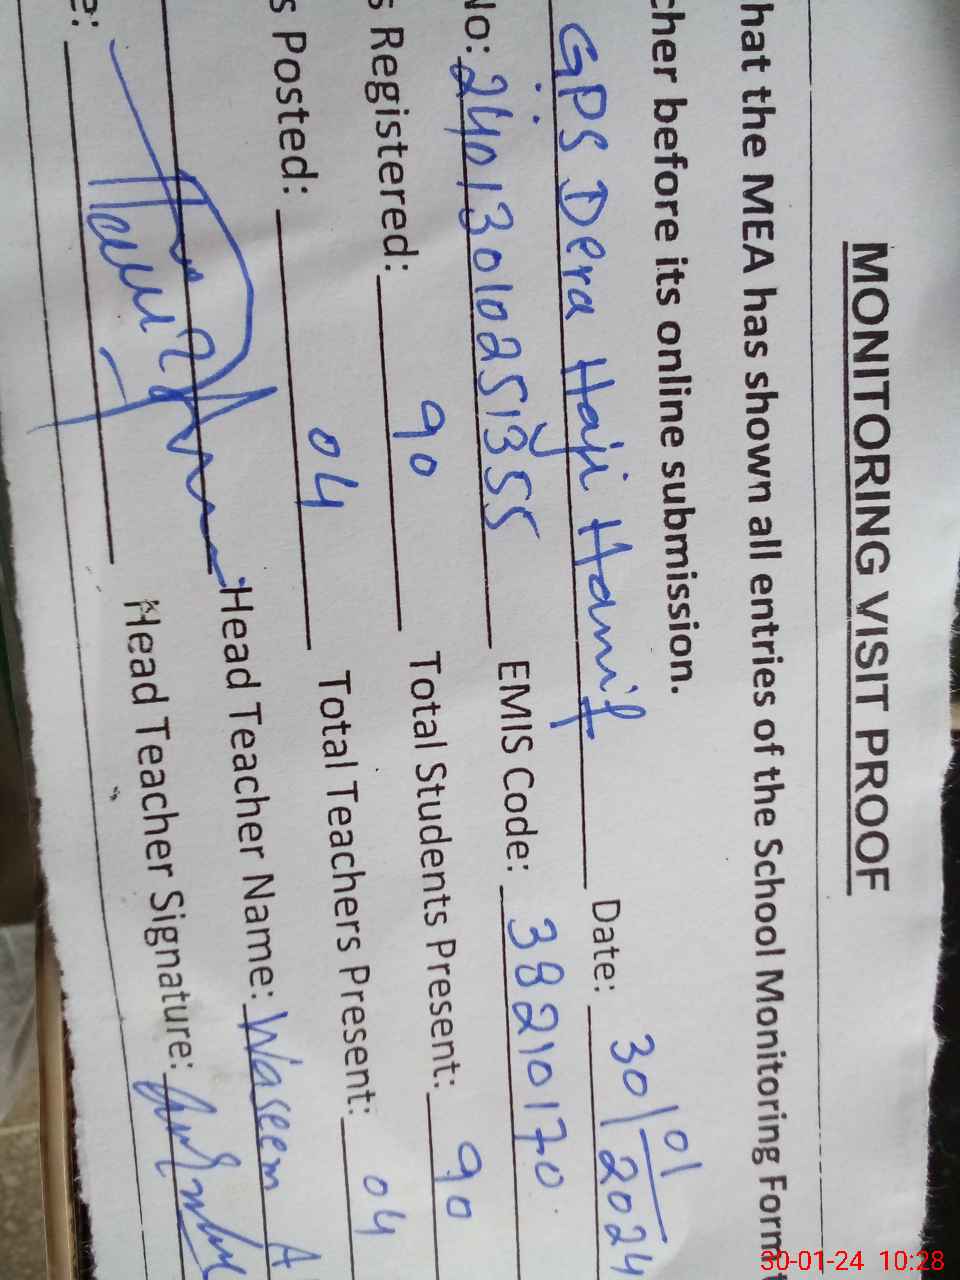 MONITORING VISIT PROOF
hat the MEA has shown all entries of the School Monitoring Form t
cher before its online submission.
GPS Dera Haji Hanif Date: 30/01/2024
No: 24013010251355 EMIS Code: 38210170
s Registered: 90 Total Students Present: 90
s Posted: 04 Total Teachers Present: 04
Head Teacher Name: Waseem A
e: Head Teacher Signature:
30-01-24 10:28